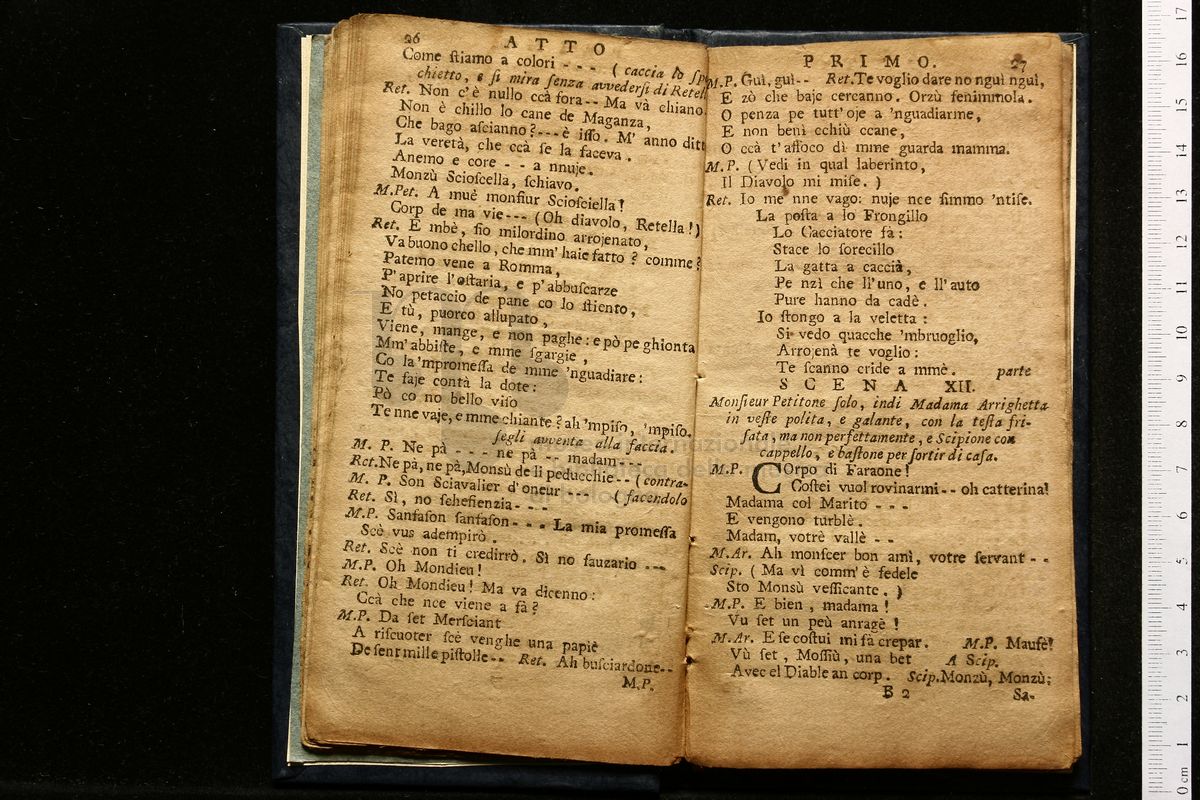 26 ATTO
Come ſtiamo a colori - - - ( caccia lo ſp
chietto, e ſi mira ſenza avvederſi di Retell
Ret. Non c'è nullo ccà fora-- Ma và chiano
Non è chillo lo cane de Maganza,
Che bago aſcianno?---è iſſo. M' anno ditt
La veretà, che ccà ſe la faceva.
Anemo e core - - a nnuje.
Monzù Scioſcella, ſchiavo.
M.Pet. A muè monſiur Scioſciella!
Corp de ma vie--- (Oh diavolo, Retella!)
Ret. E mbè, ſio milordino arrojenato,
Va buono chello, che mm' haie fatto? comme?
Patemo vene a Romma,
P'aprire l'oſtaria, e p'abbuſcarze
No petaccio de pane co lo ſtiento,
E tù, puorco allupato,
Viene, mange, e non paghe: e pò pe ghionta
Mm' abbiſte, e mme ſgargie,
Co la 'mpromeſſa de mme 'nguadiare:
Te faje contà la dote:
Pò co no bello viſo
Te nne vaje, e mme chiante? ah 'mpiſo, 'mpiſo.
ſegli avventa alla faccia.
M. P. Ne pà - - - ne pà -- madam--
Ret. Ne pà, ne pà, Monsù de li peducchie-- (contra-
M. P. Son Sciavalier d'oneur --- ( facendolo
Ret. Sì, no ſeheſienzia- - -
M.P. Sanfaſon ſanfaſon- - - La mia promeſſa
Scè vus adempirò.
Ret. Scè non ti credirrò. Sì no fauzario ---
M.P. Oh Mondieu!
Ret. Oh Mondieu! Ma va dicenno:
Ccà che nce viene a fà?
M.P. Da ſet Merſciant
A riſcuoter ſcè venghe una papiè
De ſent mille piſtolle-- Ret. Ah buſciardone--
M.P.
PRIMO. 27
M.P. Guì, guì-- Ret. Te voglio dare no nguì nguì,
E zò che baje cercanno. Orzù fenimmola.
O penza pe tutt' oje a 'nguadiarme,
E non benì cchiù ccane,
O ccà t' affoco dì mme guarda mamma.
M.P. (Vedi in qual laberinto,
Il Diavolo mi miſe. )
Ret. Io me nne vago: nuje nce ſimmo 'ntiſe.
La poſta a lo Frongillo
Lo Cacciatore fà:
Stace lo ſorecillo
La gatta a caccià,
Pe nzì che ll'uno, e ll'auto
Pure hanno da cadè.
Io ſtongo a la veletta:
Si vedo quacche 'mbruoglio,
Arrojenà te voglio:
Te ſcanno cride a mmè. parte
SCENA XII.
Monſieur Petitone ſolo, indi Madama Arrighetta
in veſte polita, e galante, con la teſta fri-
ſata, ma non perfettamente, e Scipione con
cappello, e baſtone per ſortir di caſa.
M.P. COrpo di Faraone!
Coſtei vuol rovinarmi-- oh catterina!
Madama col Marito - - -
E vengono turblè.
Madam, votrè vallè - -
M.Ar. Ah monſcer bon amì, votre ſervant - -
Scip. ( Ma vì comm' è fedele
Sto Monsù veſſicante. )
M.P. E bien, madama!
Vu ſet un peù anragè!
M.Ar. E ſe coſtui mi fa crepar. M.P. Maufè!
Vù ſet, Moſſiù, una bet A Scip.
Avec el Diable an corp. Scip. Monzù, Monzù;
B 2 Sa-